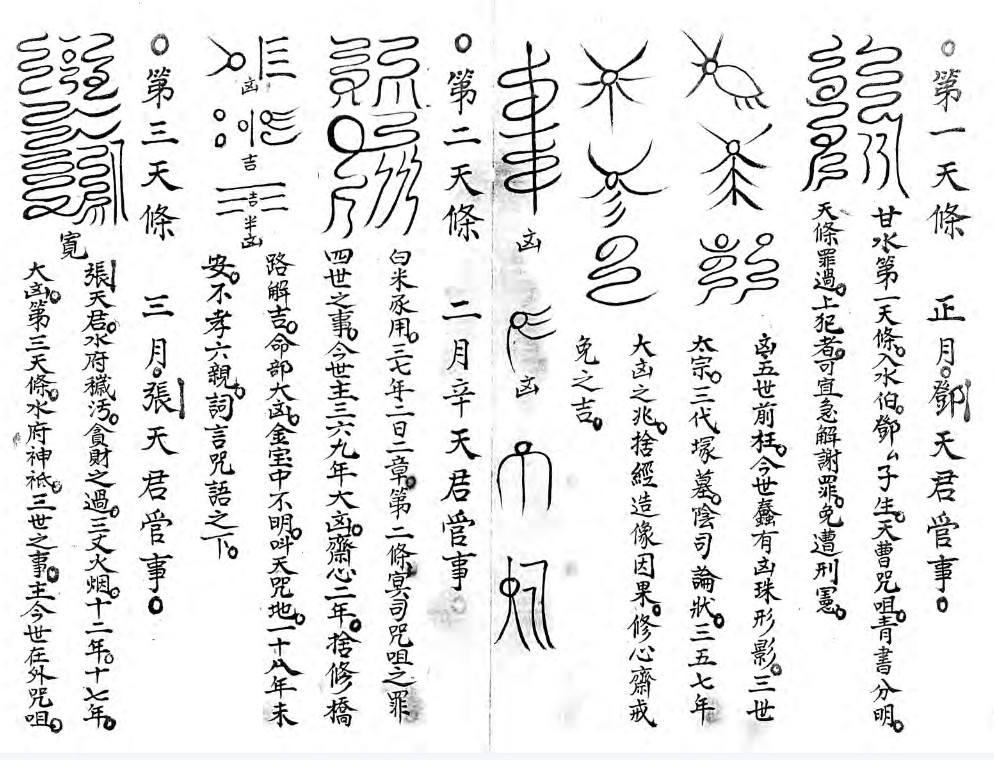 ○第一天條　正月。鄧天君管事。
甘水第一天條。入水伯。鄧厶子生。天曹咒咀。青書分明。
天條罪過。上犯者。可宜急解謝罪。免遭刑憲。
凶五世前枉。今世蠢有凶珠形影。三世
太宗。三代塚墓。陰司論狀。三五七年
大凶之兆。捨經造像因果。修心齋戒
免之吉。
凶
凶
○第二天條　二月辛天君管事。
白米承用。三七年二日二章。第二條冥司咒咀之罪
四世之事。今世主三六九年大凶。齋心二年。捨修橋
路解吉。命部大凶。金宝中不明。叫天咒地。一十八年未
安。不孝六親。詞言咒語之下。
凶
吉
吉
半凶
○第三天條　三月。張天君管事。
寬
張天君。水府穢污。貪財之過。三丈火烟。十二年。十七年。
大凶。第三天條。水府神祗。三世之事。主今世在外咒咀。